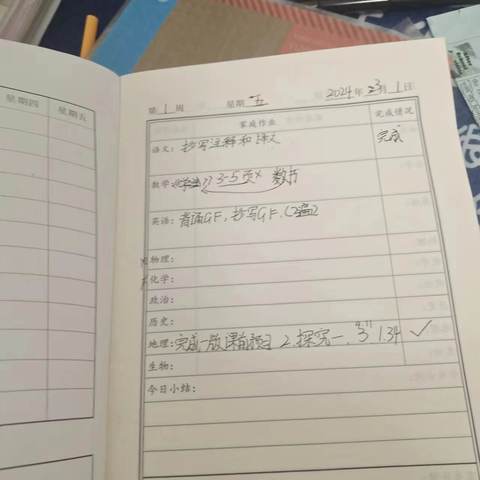 星期四 星期五
第1周 星期五 2024年 3月1日
家庭作业 完成情况
语文：抄写注释和译文 完成
数学： 3-5页 数书
英语：背诵GF，抄写GF.(2遍)
物理：
化学：
政治：
历史：
地理：完成一版课前预习 2.探究一、 ✓
生物：
今日小结：